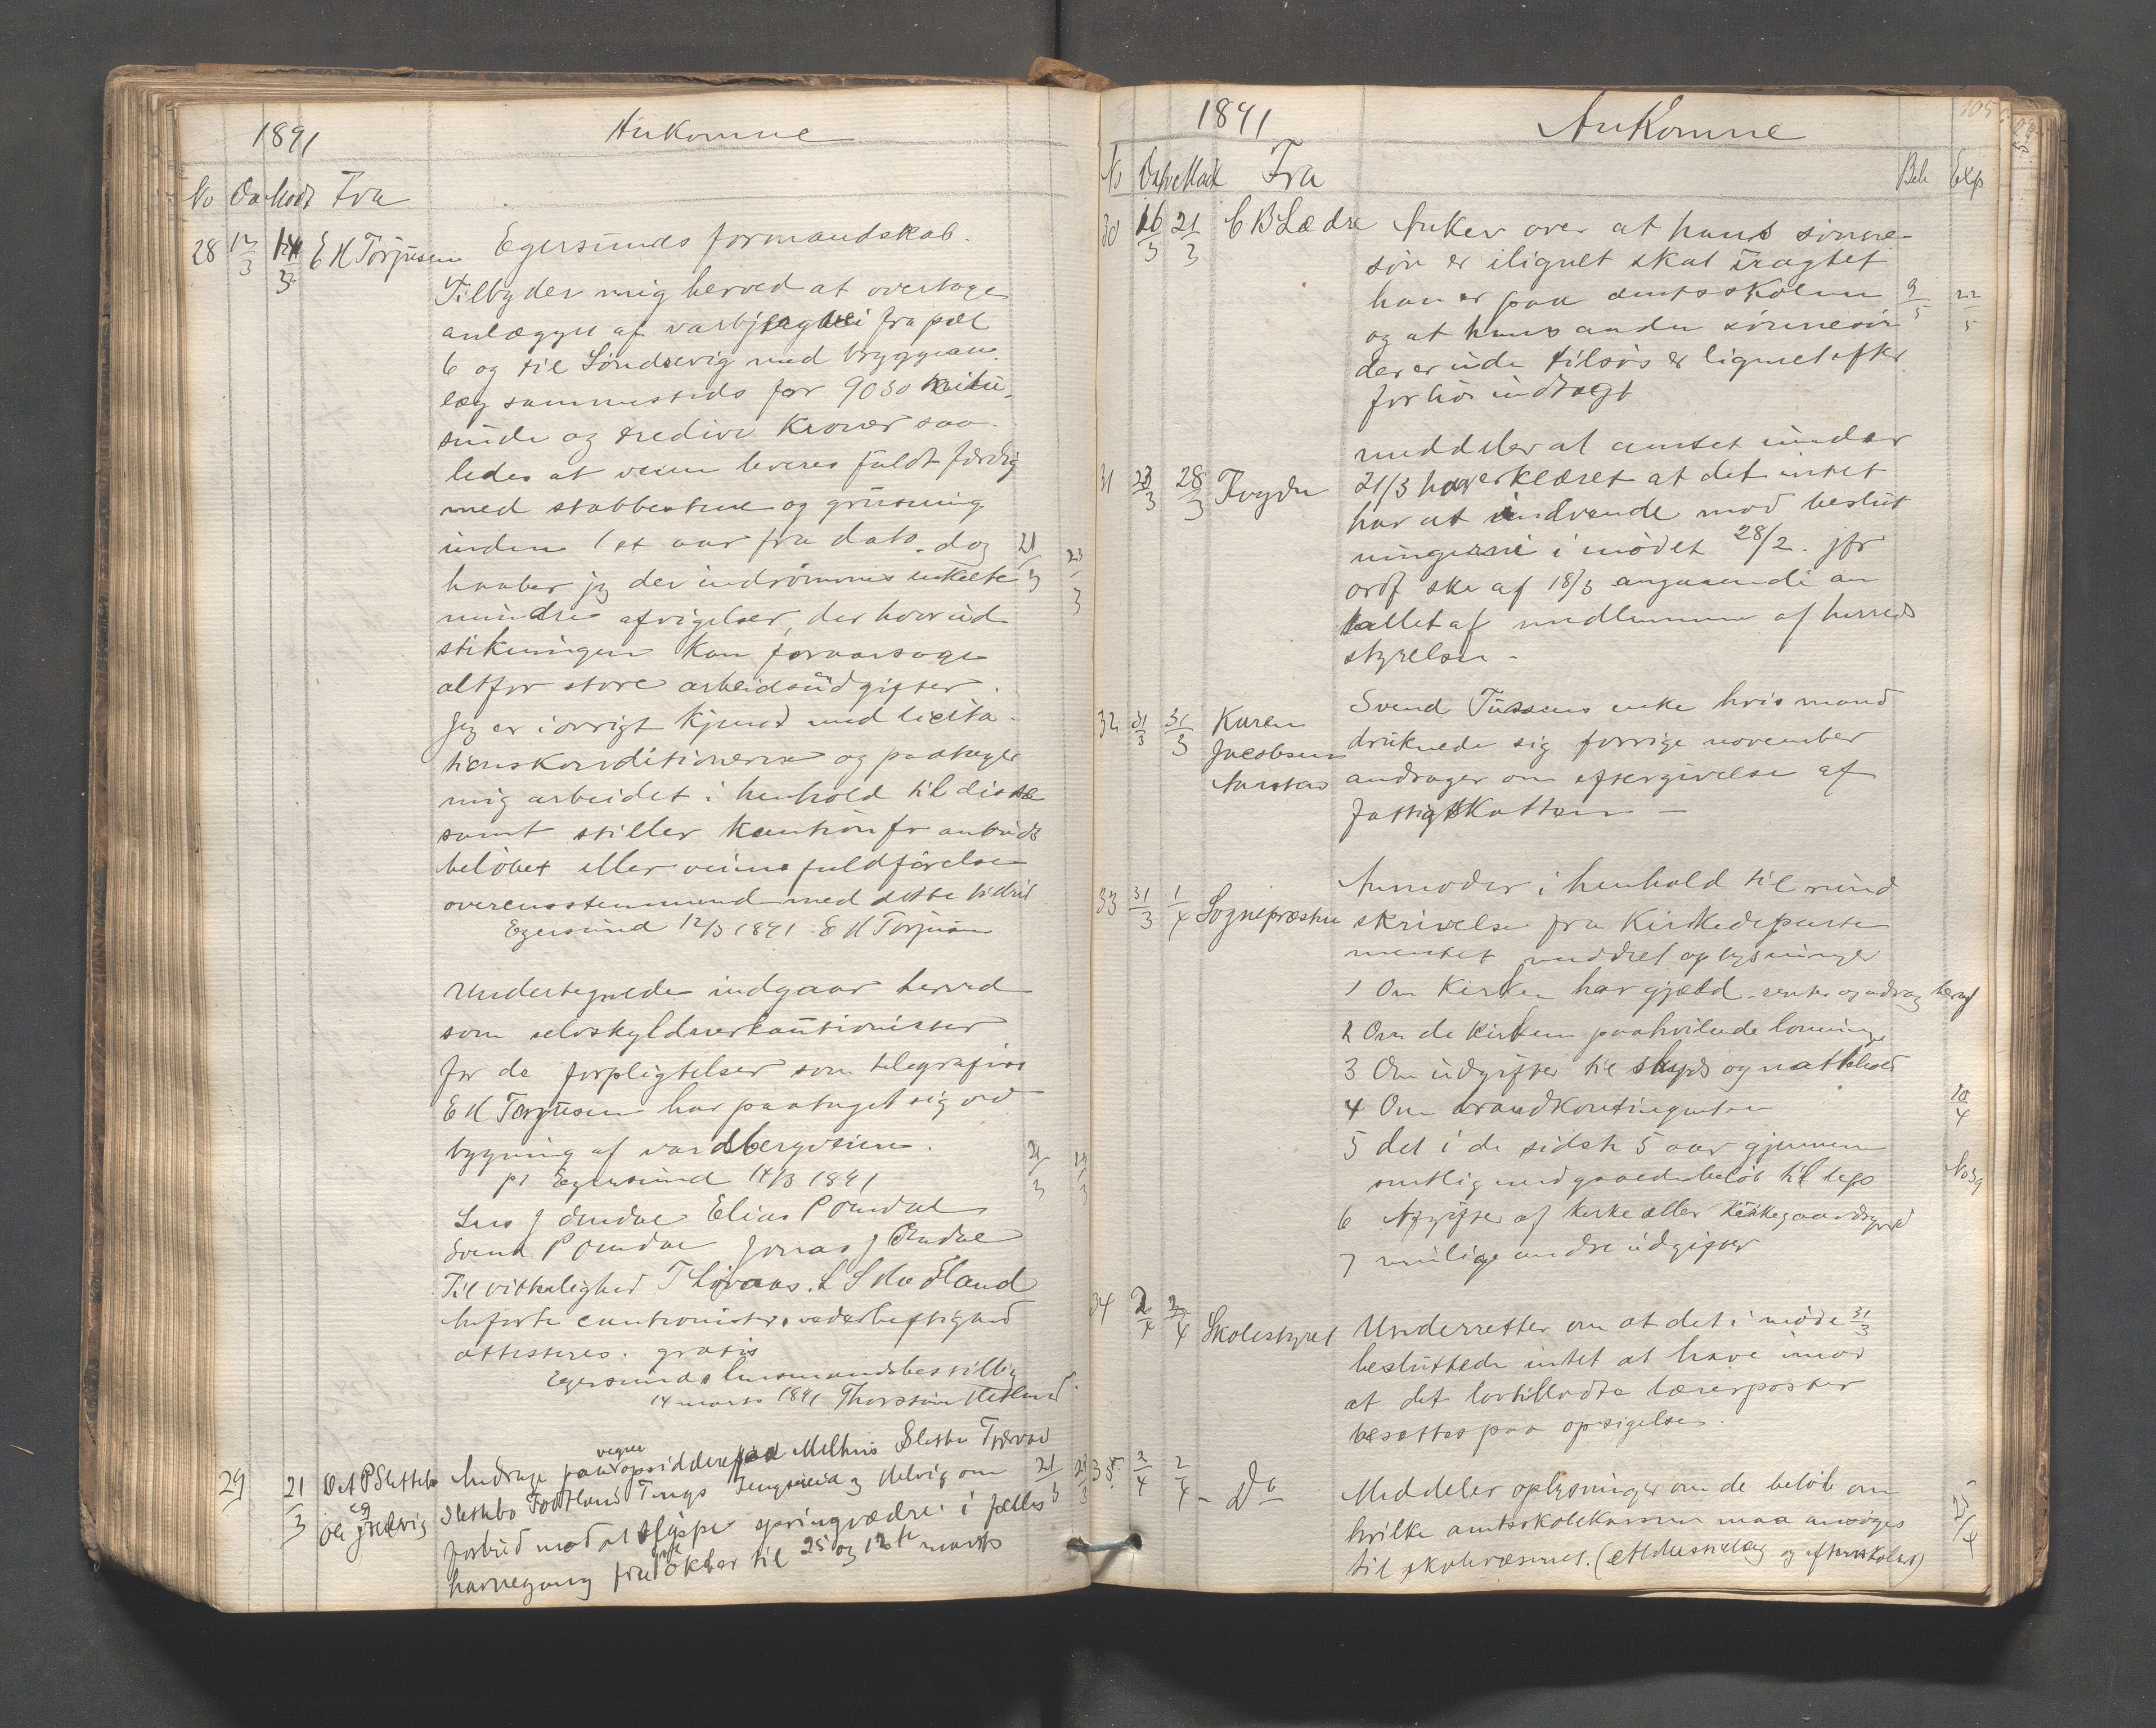 1891 Ankomne
No Da Modt Fra
28 12/3 14/3 E H Torjusen Egersunds formandskab.
Tilbyder mig herved at overtage
anlægget af varbjergvei fra pæl
6 og til Søndrevig med bryggean
læg sammesteds for 9030 nitu-
sinde og tredive Kroner saa-
ledes at veien leveres fuldt færdig
med stabbestene og grusning
inden 1 et aar fra dato. dog 21/3 23/3
haaber jeg der indrømmes enkelte
mindre afvigelser, der hvor ud
stikningen kan foraarsage
altfor store arbeidsudgifter.
Jeg er iøvrigt kjendt med licita-
tionskonditionerne og paatager
mig arbeidet i henhold til disse
samt stiller kaution for anbuds
beløbet eller veiens fuldførelse
overensstemmende med dette tilbud
Egersund 12/3 1891 E H Torjusen
Undertegnede indgaar herved
som selvskyldnerkautionister
for de forpligtelser som telegrafist
E H Torjusen har paataget sig ved
bygning af vardbergveien. 21/3 23/3
pr Egersund 14/3 1891
Lars J Omdal Elias P Omdal
Svend P Omdal Jonas J Omdal
Til vitterlighed T Løvaas. L S Mo Eland
Anførte cautionisters vederheftighed
attesteres. gratis
Egersunds lensmandsbestilling
14 marts 1891 Thorstein Hetland
29 21/3 O A P Slettebø Andrage paa opsidderes vegne paa Melhus Slettebø Tjærvad
og Slettebø Fodtland Tengs Tengsareid og Helvig om 21/3 23/3
Ole J Helvig forbud mod at slippe springvædre i fælles
havnegang fra 1ste oktbr til 25 og 12te marts
1891 Ankomne 105
No Dato Modt Fra Beh Exp
30 16/3 21/3 C B Lædre Anker over at hans sønne-
søn er ilignet skat uagtet
han er paa amtsskolen 9/5 22/5
og at hans anden sønnesøn
der er ude tilsøs er lignet efter
for høi indtægt
31 23/3 28/3 Fogden meddeler at amtet under
21/3 har erklæret at det intet
har at indvende mod beslut
ningerne i mødet 28/2. jfr
ordf skr af 18/3 angaaende an
tallet af medlemmer af herreds
styrelsen -
32 31/3 31/3 Karen Svend Tussens enke hvis mand
Jacobsen druknede sig forrige november
Aarstad andrager om eftergivelse af
fattigskatten -
33 31/3 1/4 Sognepresten Anmoder i henhold til rund
skrivelse fra Kirkedeparte
mentet meddelt oplysninger
1 Om Kirken har gjæld - renter og afdrag heraf
2 Om de kirken paahvilende lønninger
3 Om udgifter til skyds og nathhold
4 Om brandkontingenten 10/4
5 det i de sidste 5 aar gjennem
snitlig medgaaede beløb til repr No 39
6 Afgifter af kirke eller Kirkegaardsgrund
7 mulige andre udgifter
34 2/4 2/4 Skolestyret Underretter om at det i møde 31/3
besluttede intet at have imod
at det lovtilladte lærerposter
besættes paa opsigelse.
35 2/4 2/4 - Do - Meddeler oplysninger om de beløb om
hvilke amtsskolekassen maa ansøges 25/4
til skolevæsenet. (alderstillæg og aftenskoler)